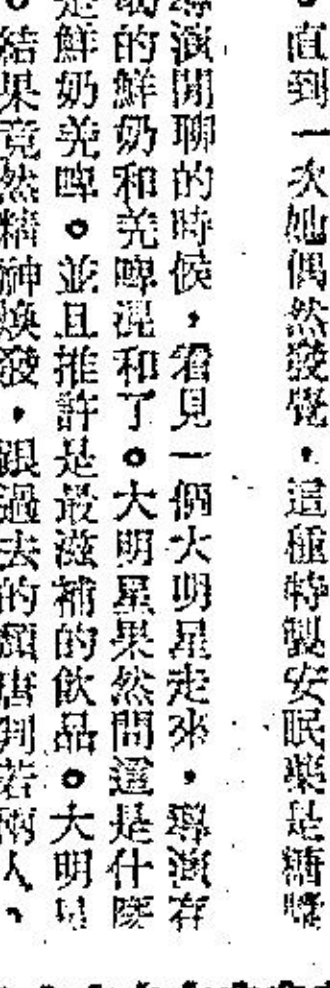 。直到一次她偶然發覺，這種特製安眠藥是糖
導演閒聊的時候，看見一個大明星走來，導演存
的鮮奶和羌啤混和了。大明星果然問這是什麽
是鮮奶羌啤。並且推許是最滋補的飲品。大明星
。結果竟然精神煥發，跟過去的頹唐判若兩人、